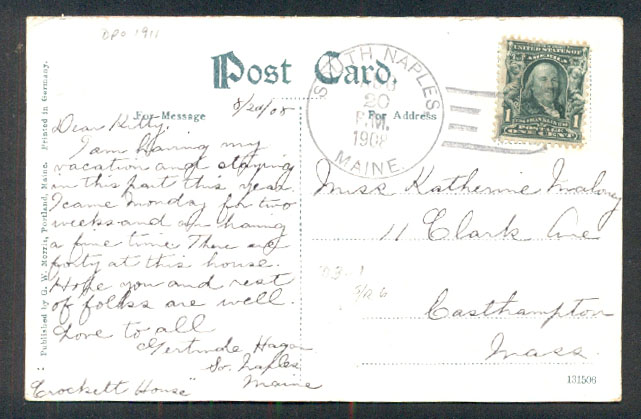 DPO 1911
Post Card.
For Message
8/20/08
For Address
SOUTH NAPLES
AUG
20
P.M.
1908
MAINE.
UNITED STATES OF
AMERICA
1 1
POSTAGE
ONE CENT
Dear Kitty.
I am having my
vacation and staying
in this part this year.
I came Monday for two
weeks and am having
a fine time. There are
forty at this house.
Hope you and rest
of folks are well.
Love to all
Gertrude Hagan
So. Naples
Maine
"Crockett House"
Miss Katherine Maloney
11 Clark Ave
Easthampton
Mass.
131506
Published by G. W. Morris, Portland, Maine. Printed in Germany.